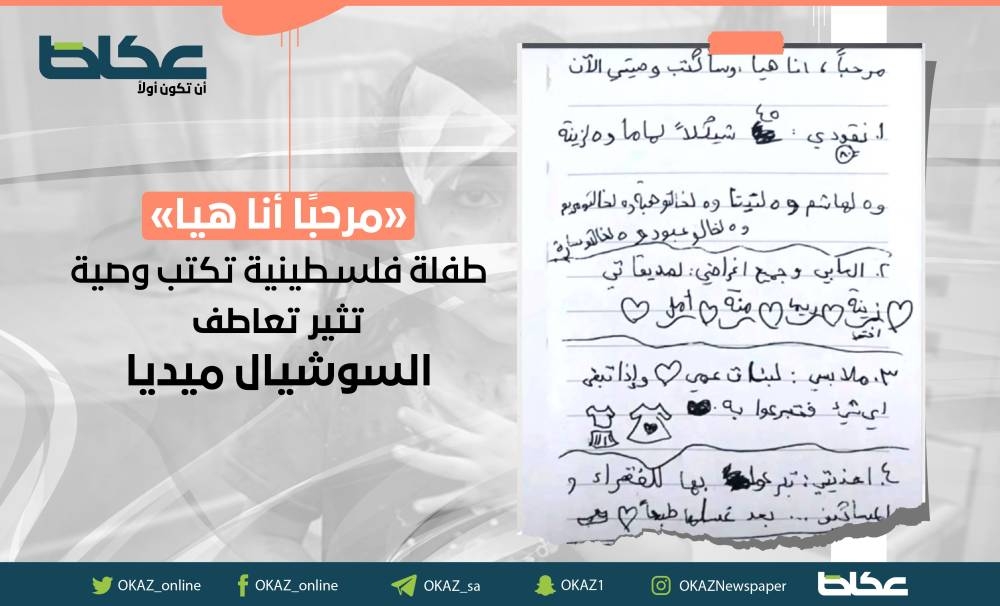 عكاظ
أن تكون أولاً
«مرحبًا أنا هيا»
طفلة فلسطينية تكتب وصية
تثير تعاطف
السوشيال ميديا
مرحباً، انا هيا، وسأكتب وصيتي الآن
١. نقودي: ٤٥ شيكلاً لماما و٥ لزينة
٨٠
و٥ لهاشم و٥ لتيتا و٥ لخالتو هبة و٥ لخالتو مريم
و٥ لخالو عبود و٥ لخالتو سارة
٢. العابي وجميع اغراضي: لصديقاتي
زينة ريما منة أمل
اختها
٣. ملابسي: لبنات عمي وإذا تبقى
اي شيء فتبرعوا به.
٤. احذيتي: تبرعوا بها للفقراء و
المساكين ... بعد غسلها طبعاً
OKAZ_online
OKAZ_online
OKAZ_sa
OKAZ1
OKAZNewspaper
عكاظ